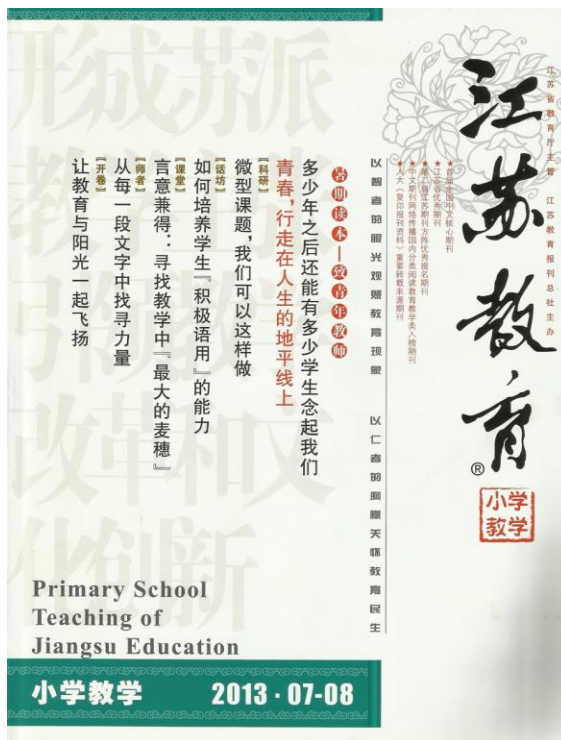 江苏教育
®
小学
教学
江苏省教育厅主管 江苏教育报刊总社主办
★首届全国中文核心期刊
★江苏省优秀期刊
★第六届江苏期刊方阵优秀提名期刊
★中文期刊网络传播国内分类阅读教育教学类入榜期刊
★人大《复印报刊资料》重要转载来源期刊
以智者的眼光观照教育现象 以仁者的胸襟关怀教育民生
暑期读本—致青年教师
多少年之后还能有多少学生念起我们
青春，行走在人生的地平线上
【科研】
微型课题，我们可以这样做
【话坊】
如何培养学生『积极语用』的能力
【课堂】
言意兼得：寻找教学中『最大的麦穗』
【师者】
从每一段文字中找寻力量
【开卷】
让教育与阳光一起飞扬
形成苏派
改革和文
化创新
Primary School
Teaching of
Jiangsu Education
小学教学 2013·07-08